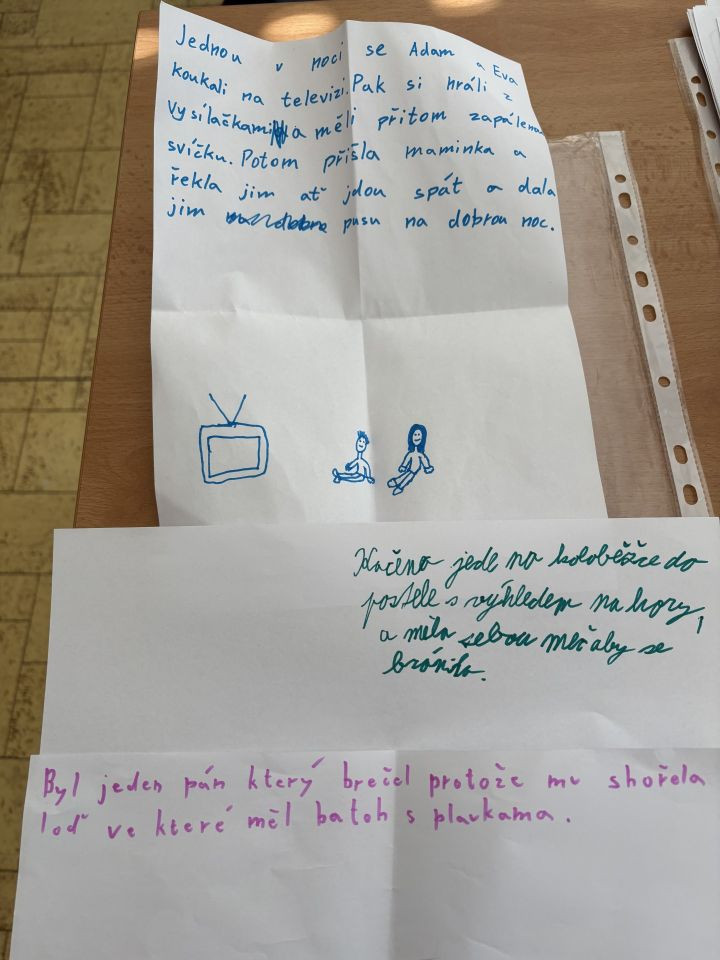 Jednou v noci se Adam a Eva
koukali na televizi. Pak si hráli z
vysílačkami a měli přitom zapálenou
svíčku. Potom přišla maminka a
řekla jim ať jdou spát a dala
jim pusu na dobrou noc.
Kačena jede na koloběžce do
postele s výhledem na hory,
a měla sebou meč aby se
bránila.
Byl jeden pán který brečel protože mu shořela
loď ve které měl batoh s plavkama.